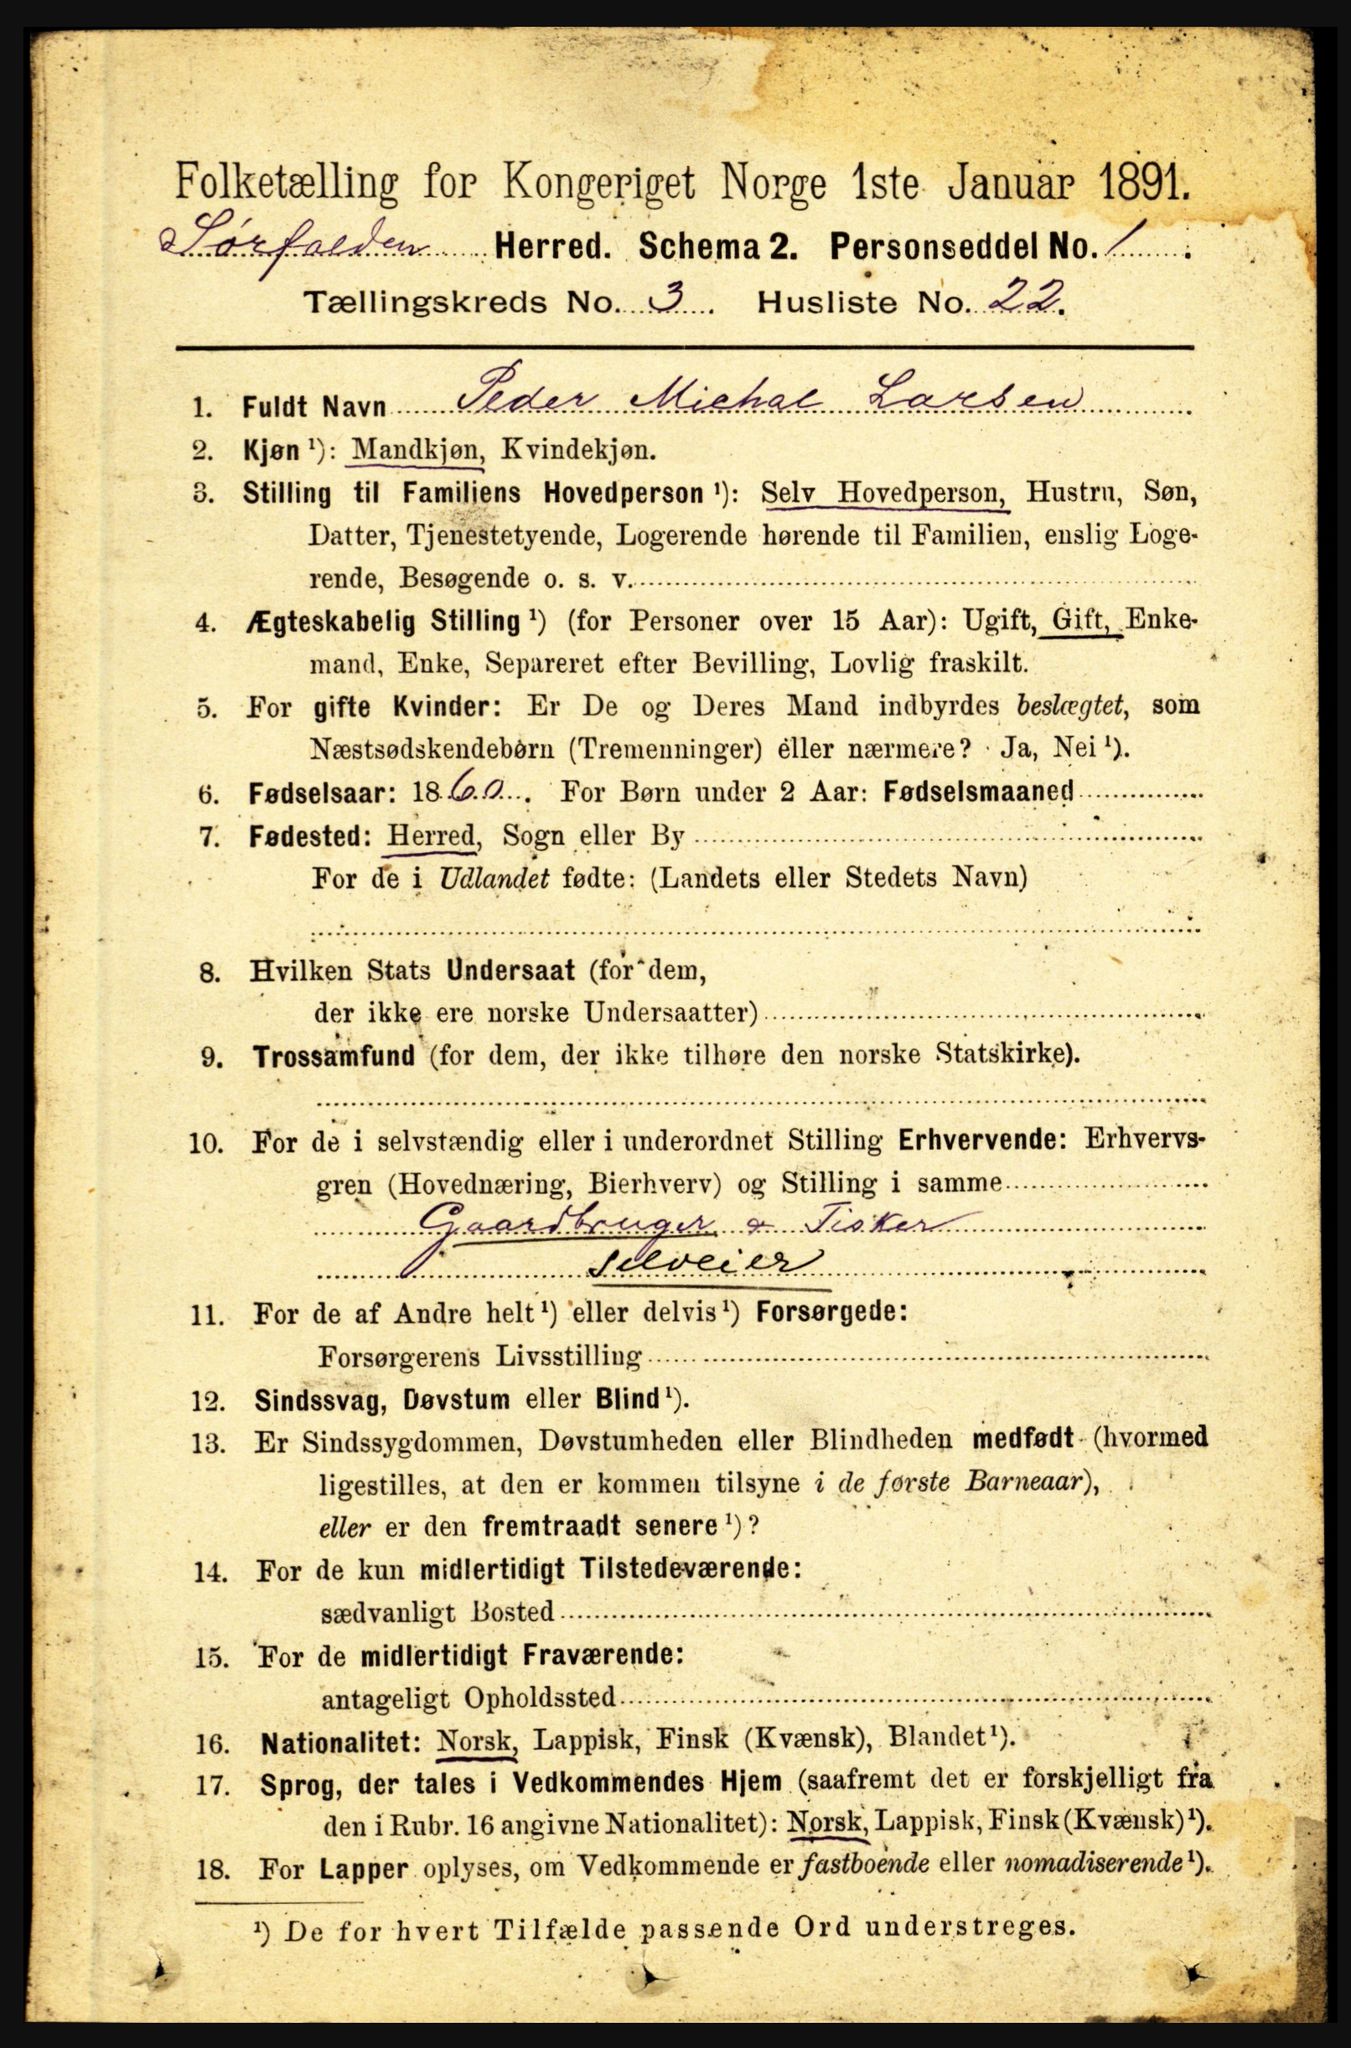 Folketælling for Kongeriget Norge 1ste Januar 1891.
Sørfolden Herred. Schema 2. Personseddel No. 1.
Tællingskreds No. 3. Husliste No. 22.
1. Fuldt Navn Peder Michal Larsen
2. Kjøn ¹): Mandkjøn, Kvindekjøn.
3. Stilling til Familiens Hovedperson ¹): Selv Hovedperson, Hustru, Søn,
Datter, Tjenestetyende, Logerende hørende til Familien, enslig Loge-
rende, Besøgende o. s. v.
4. Ægteskabelig Stilling ¹) (for Personer over 15 Aar): Ugift, Gift, Enke-
mand, Enke, Separeret efter Bevilling, Lovlig fraskilt.
5. For gifte Kvinder: Er De og Deres Mand indbyrdes beslægtet, som
Næstsødskendebørn (Tremenninger) eller nærmere? Ja, Nei ¹).
6. Fødselsaar: 1860. For Børn under 2 Aar: Fødselsmaaned
7. Fødested: Herred, Sogn eller By
For de i Udlandet fødte: (Landets eller Stedets Navn)
8. Hvilken Stats Undersaat (for dem,
der ikke ere norske Undersaatter)
9. Trossamfund (for dem, der ikke tilhøre den norske Statskirke).
10. For de i selvstændig eller i underordnet Stilling Erhvervende: Erhvervs-
gren (Hovednæring, Bierhverv) og Stilling i samme
Gaardbruger & Fisker
selveier
11. For de af Andre helt ¹) eller delvis ¹) Forsørgede:
Forsørgerens Livsstilling
12. Sindssvag, Døvstum eller Blind ¹).
13. Er Sindssygdommen, Døvstumheden eller Blindheden medfødt (hvormed
ligestilles, at den er kommen tilsyne i de første Barneaar),
eller er den fremtraadt senere ¹)?
14. For de kun midlertidigt Tilstedeværende:
sædvanligt Bosted
15. For de midlertidigt Fraværende:
antageligt Opholdssted
16. Nationalitet: Norsk, Lappisk, Finsk (Kvænsk), Blandet ¹).
17. Sprog, der tales i Vedkommendes Hjem (saafremt det er forskjelligt fra
den i Rubr. 16 angivne Nationalitet): Norsk, Lappisk, Finsk (Kvænsk) ¹).
18. For Lapper oplyses, om Vedkommende er fastboende eller nomadiserende ¹).
¹) De for hvert Tilfælde passende Ord understreges.